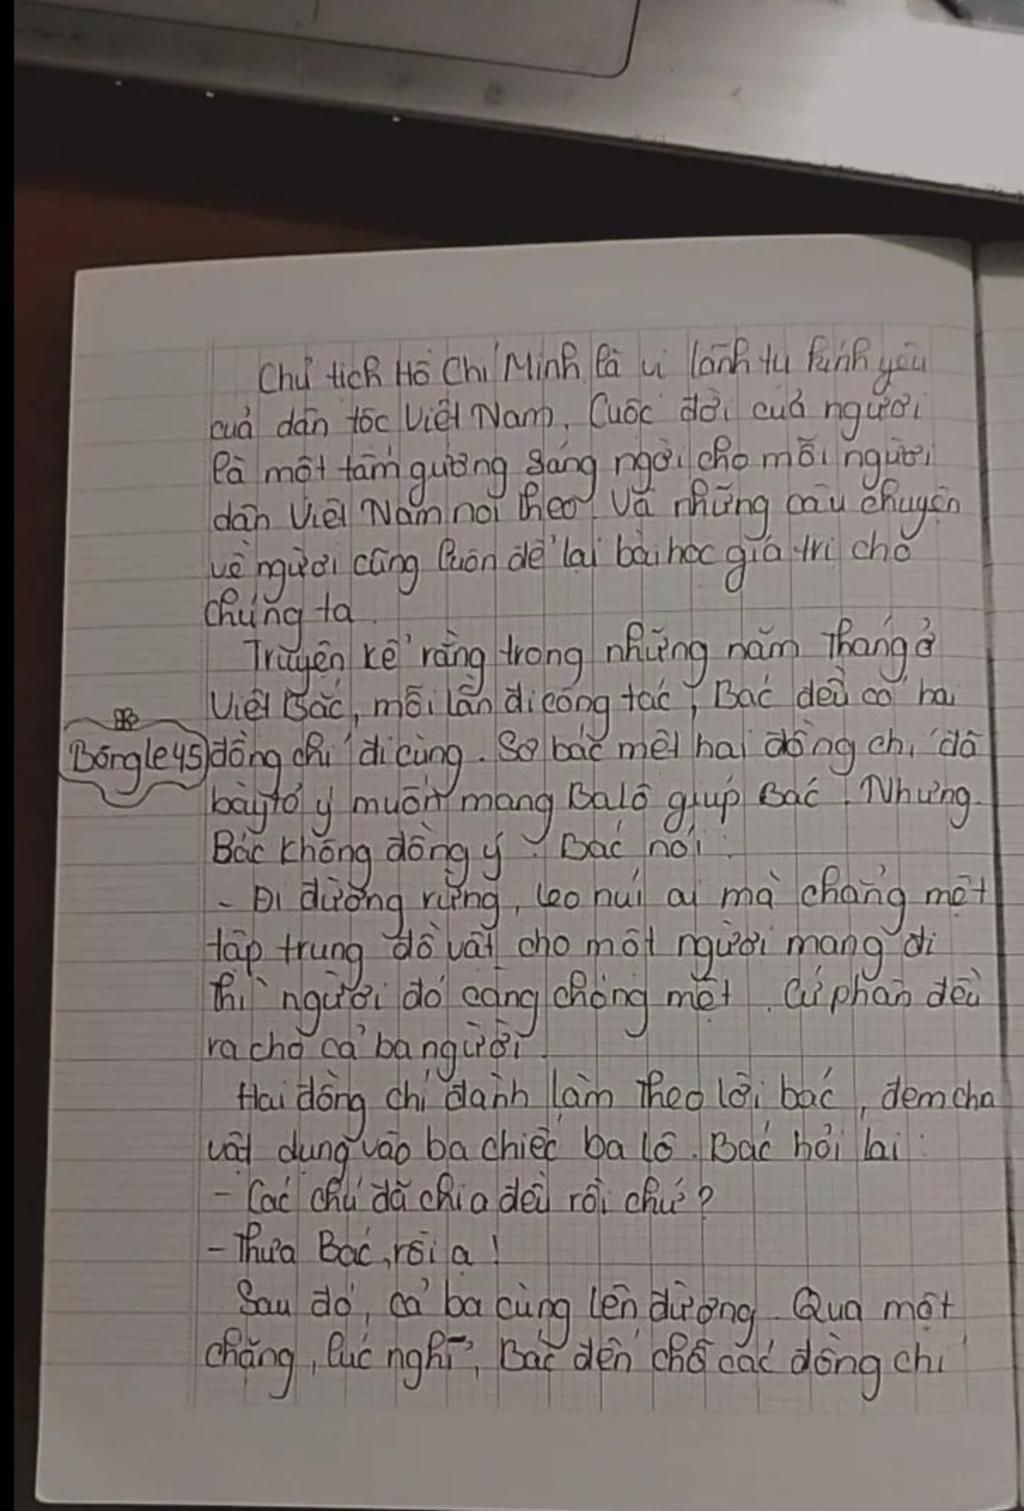 Chủ tịch Hồ Chí Minh là vị lãnh tụ kính yêu
của dân tộc Việt Nam. Cuộc đời của người
là một tấm gương sáng ngời cho mỗi người
dân Việt Nam noi theo. Và những câu chuyện
về người cũng luôn để lại bài học giá trị cho
chúng ta.
Truyện kể rằng trong những năm tháng ở
Việt Bắc, mỗi lần đi công tác, Bác đều có hai
Bongle45
đồng chí đi cùng. Sợ bác mệt hai đồng chí đó
bày tỏ ý muốn mang Balô giúp Bác. Nhưng
Bác không đồng ý. Bác nói:
- Đi đường rừng, leo núi ai mà chẳng mệt
tập trung đồ vật cho một người mang đi
thì người đó càng chóng mệt. Cứ phân đều
ra cho cả ba người.
Hai đồng chí đành làm theo lời bác, đem chia
vật dụng vào ba chiếc ba lô. Bác hỏi lại:
- Các chú đã chia đều rồi chứ?
- Thưa Bác, rồi ạ!
Sau đó, cả ba cùng lên đường. Qua một
chặng, lúc nghỉ, Bác đến chỗ các đồng chí